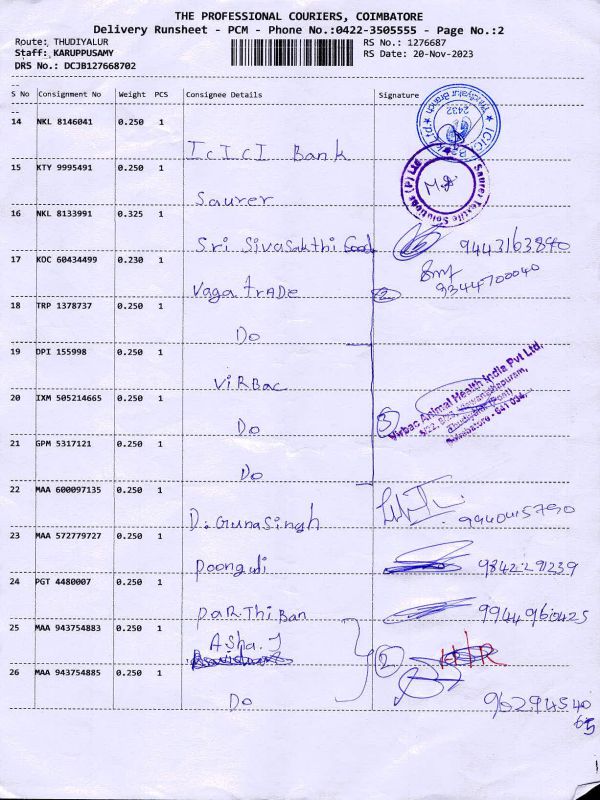 THE PROFESSIONAL COURIERS, COIMBATORE
Delivery Runsheet - PCM - Phone No.:0422-3505555 - Page No.:2
Route: THUDIYALUR RS No.: 1276687
Staff: KARUPPUSAMY RS Date: 20-Nov-2023
DRS No.: DCJB127668702
S No Consignment No Weight PCS Consignee Details Signature
14 NKL 8146041 0.250 1
ICICI Bank
ICICI Bank
Thudiyalur Branch
2432
15 KTY 9995491 0.250 1
Saurer
Saurer Textile Solutions (P) Ltd
16 NKL 8133991 0.325 1
Sri Sivasakthi 9443163840
17 KOC 60434499 0.230 1
Vaga traDe 2 9344700040
18 TRP 1378737 0.250 1
Do
19 DPI 155998 0.250 1
ViRBac
20 IXM 505214665 0.250 1
Do 3
Virbac Animal Health India Pvt Ltd,
Coimbatore - 641 034.
21 GPM 5317121 0.250 1
Do
22 MAA 600097135 0.250 1
D. Gunasingh 9940415790
23 MAA 572779727 0.250 1
Poongudi 9842291239
24 PGT 4480007 0.250 1
ParThiBan 9944960425
25 MAA 943754883 0.250 1
Asha. J 2
26 MAA 943754885 0.250 1
Do 9629454065